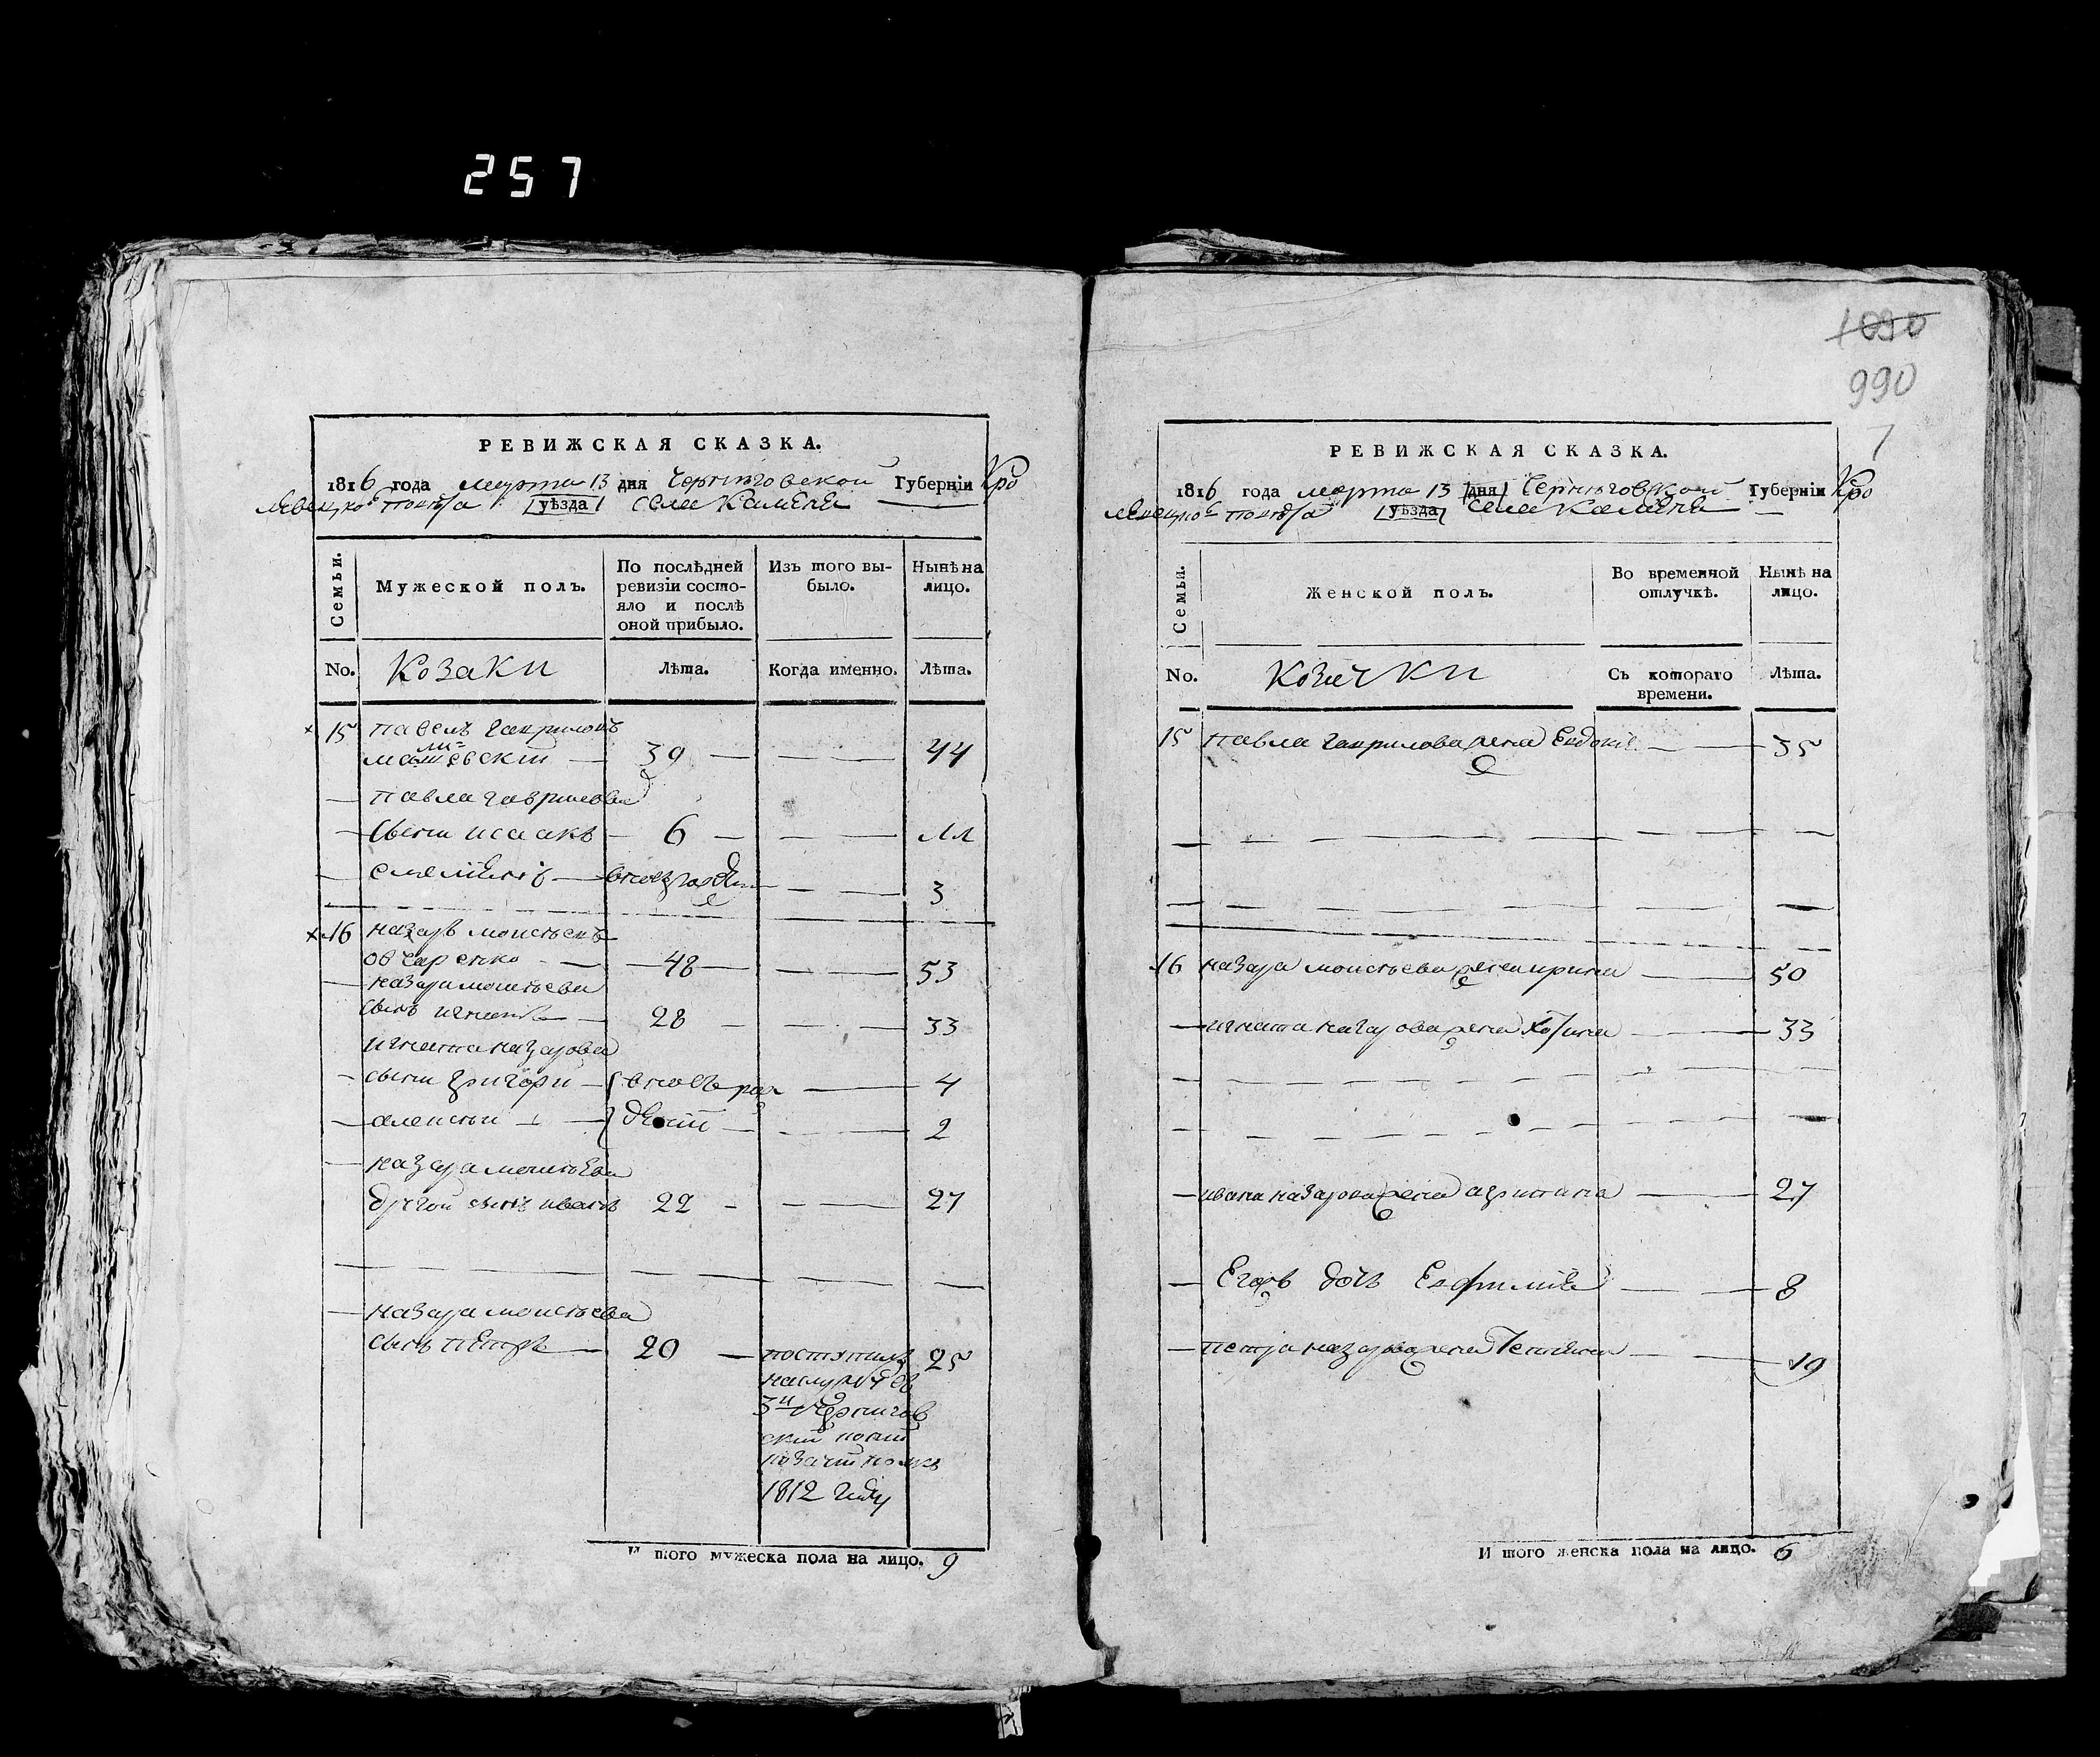 257
РЕВИЖСКАЯ СКАЗКА.
1816 года марта 13 дня Черниговской Губерніи Кро
левецко повѣта уѣзда села Каменя
Семьи.
Мужеской полъ.
По послѣдней ревизіи состо-
яло и послѣ
оной прибыло.
Изъ того вы-
было.
Нынѣ на
лицо.
No. Козаки Лѣта. Когда именно. Лѣта.
15 павелъ гавриловъ
39 44
павла гаврилова
сыны исаакъ 6 11
3
16 назаръ моисѣевъ
овчаренко 48 53
назара моисѣева
сынъ игнатъ 28 33
игната назарова
сыны григори вновь рож 4
алексѣй денни 2
назара моисѣева
другой сынъ иванъ 22 27
назара моисѣева
сынъ петръ 20 поступилъ 25
на службу въ
3й чернигов
ский
козачий полкъ
1812 году
И того мужеска пола на лицо. 9
1090
990
7
РЕВИЖСКАЯ СКАЗКА.
1816 года марта 13 дня Черниговской Губерніи Кро
левецко повѣта уѣзда села Каменя
Семьи.
Женской полъ.
Во временной
отлучкѣ.
Нынѣ на
лицо.
No. Козачки Съ котораго
времени. Лѣта.
15 павла гаврилова жена Евдокия 35
16 назара моисѣева жена ирина 50
игната назарова жена 33
ивана назарова жена агрипина 27
Его дочь Евфимия 8
петра назарова жена 19
И того женска пола на лицо. 6